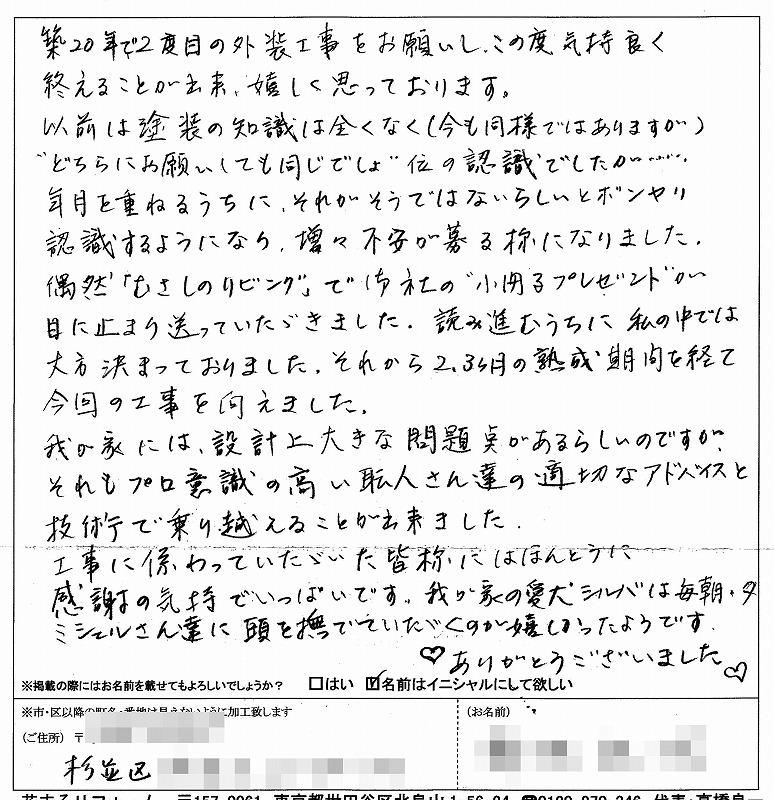 築20年で2度目の外装工事をお願いし、この度気持良く
終えることが出来、嬉しく思っております。
以前は塗装の知識は全くなく(今も同様ではありますが)
"どちらにお願いしても同じでしょ"位の認識でしたが……
年月を重ねるうちに、それがそうではないらしいとボンヤリ
認識するようになり、増々不安が募る様になりました。
偶然「むさしのリビング」で御社の"小冊子プレゼント"が
目に止まり送っていただきました。読み進むうちに私の中では
大方決まっておりました。それから2.3ヶ月の熟成期間を経て
今回の工事を向えました。
我が家には、設計上大きな問題点があるらしいのですが、
それもプロ意識の高い職人さん達の適切なアドバイスと
技術で乗り越えることが出来ました。
工事に係わっていただいた皆様にはほんとうに
感謝の気持でいっぱいです。我が家の愛犬シルバは毎朝・夕
ミシェルさん達に頭を撫でていただくのが嬉しかったようです。
♡ありがとうございました♡
※掲載の際にはお名前を載せてもよろしいでしょうか? □はい ☑名前はイニシャルにして欲しい
※市・区以降の町名・番地は見えないように加工致します
(お名前)
(ご住所) 〒
杉並区